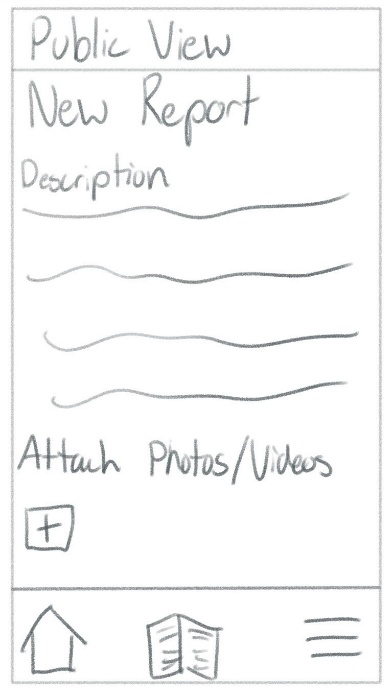 Public View
New Report
Description
Attach Photos/Videos